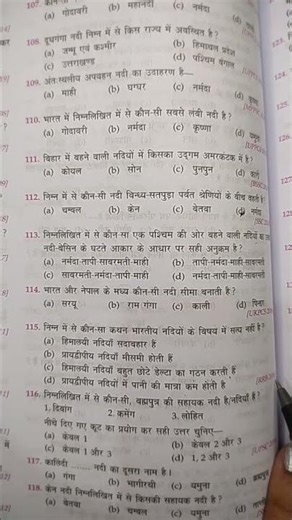 107.
(a) गोदावरी (b) महानदी (c) नर्मदा (d)
108. दूधगंगा नदी निम्न में से किस राज्य में अवस्थित है?
(a) जम्मू एवं कश्मीर (b) हिमाचल प्रदेश
(c) उत्तराखण्ड (d) पश्चिम बंगाल
109. अंतःस्थलीय अपवहन नदी का उदाहरण है—
(a) माही (b) घग्घर (c) नर्मदा (d) कृष्णा
110. भारत में निम्नलिखित में से कौन-सी सबसे लंबी नदी है?
(a) गोदावरी (b) नर्मदा (c) कृष्णा (d) यमुना
111. बिहार में बहने वाली नदियों में किसका उद्गम अमरकंटक में है?
(a) कोयल (b) सोन (c) पुनपुन (d)
112. निम्न में से कौन-सी नदी विन्ध्य-सतपुड़ा पर्वत श्रेणियों के बीच बहती है?
(a) चम्बल (b) केन (c) बेतवा (d) नर्मदा
113. निम्नलिखित में से कौन सा एक पश्चिम की ओर बहने वाली नदियों का
नदी-बेसिन के घटते आकार के आधार पर सही अनुक्रम है?
(a) नर्मदा-तापी-साबरमती-माही (b) तापी-नर्मदा-माही-साबरमती
(c) साबरमती-नर्मदा-तापी-माही (d) नर्मदा-तापी-माही-साबरमती
114. भारत और नेपाल के मध्य कौन-सी नदी सीमा बनाती है?
(a) सरयू (b) राम गंगा (c) काली (d)
115. निम्न में से कौन-सा कथन भारतीय नदियों के विषय में सत्य नहीं है?
(a) हिमालयी नदियाँ सदाबहार हैं
(b) प्रायद्वीपीय नदियाँ मौसमी होती हैं
(c) हिमालयी नदियाँ बहुत छोटे डेल्टा का गठन करती हैं
(d) प्रायद्वीपीय नदियों में पानी की मात्रा कम होती है
116. निम्नलिखित में से कौन-सी, ब्रह्मपुत्र की सहायक नदी है/नदियाँ हैं?
1. दिबांग 2. कमेंग 3. लोहित
नीचे दिए गए कूट का प्रयोग कर सही उत्तर चुनिए—
(a) केवल 1 (b) केवल 2 और 3
(c) केवल 1 और 3 (d) 1, 2 और 3
117. कालिंदी ........ नदी का दूसरा नाम है।
(a) गंगा (b) भागीरथी (c) यमुना (d)
118. केन नदी निम्नलिखित में से किसकी सहायक नदी है?
(a) बेतवा (b) चम्बल (c) यमुना (d)